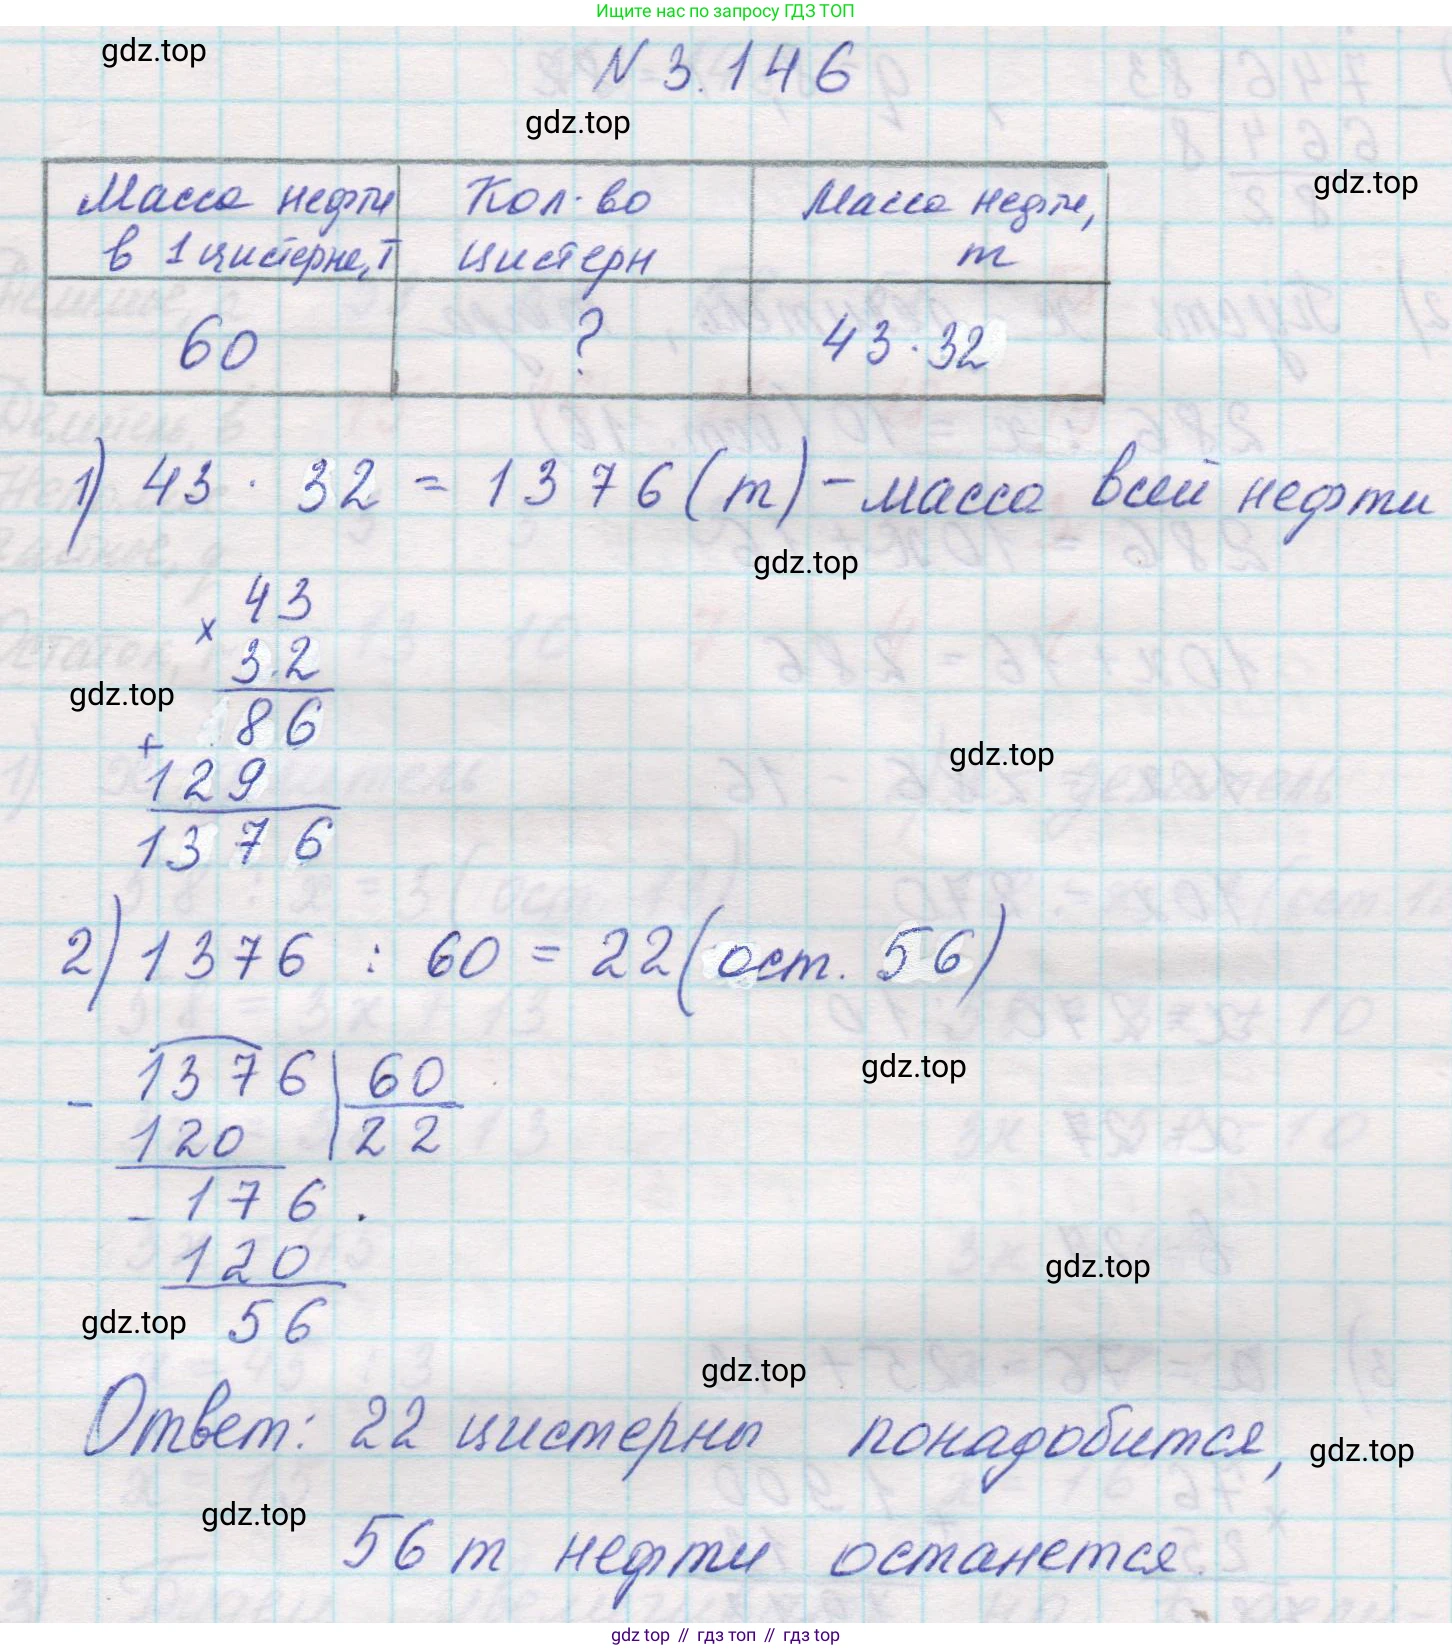 Ищите нас по запросу ГДЗ ТОП
gdz.top
N 3.146
gdz.top
Масса нефти в 1 цистерне, т
Кол-во цистерн
Масса нефти, т
gdz.top
60
?
43 · 32
1) 43 · 32 = 1376 (т) - масса всей нефти
gdz.top
× 43
32
gdz.top
86
+
129
1376
gdz.top
2) 1376 : 60 = 22 (ост. 56)
gdz.top
- 1376 | 60
120 | 22
- 176
120
gdz.top
56
gdz.top
gdz.top
Ответ: 22 цистерны понадобится,
gdz.top
gdz.top
56 т нефти останется.
gdz top // гдз топ // гдз top